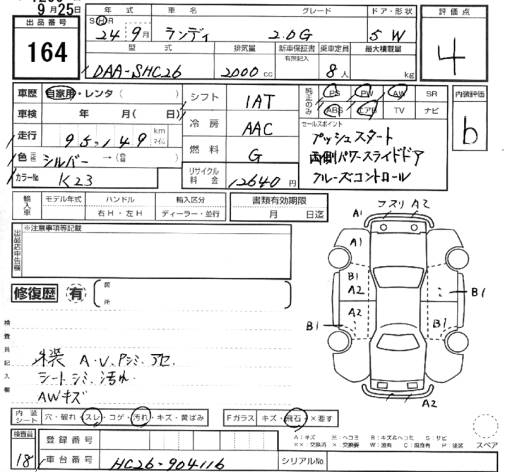 9月25日
出品番号
164
年式 車名 グレード ドア・形状
S H R 24年9月 ランディ 2.0G 5 W
型式 排気量 新車保証書 有無記入 乗車定員 最大積載量
DAA-SHC26 2000cc 8人 kg
評価点
4
車歴 自家用・レンタ( )
車検 年 月( 日)
走行 95,149 km マイル
色 シルバー →(色替)
カラーNo K23
シフト 1AT
冷房 AAC
燃料 G
リサイクル料金 12640円
純正のみ PS PW AW SR
ABS エアB TV ナビ
セールスポイント
プッシュスタート
両側パワースライドドア
クルーズコントロール
内装評価
b
輸入車 モデル年式 ハンドル 輸入区分
年 右H・左H ディーラー・並行
書類有効期限
月 日迄
出品店申告欄
※注意事項等記載
修復歴 有
箇所
検査員記入欄
A・U,Pシミ,アセ
シートシミ 汚れ
AWキズ
フスリ A2
A1
A1
B1
A2
B1
A2
B1
A2
内装シート 穴・破れ・スレ・コゲ・汚れ・キズ・黄ばみ
Fガラス キズ・飛石・×要す
A:キズ E:ヘコミ B:キズ&ヘコミ S:サビ
××交換済 ×交換要 W:波有 C:腐食有 P:塗装
スペア
検査員 18
登録番号
車台番号 HC26-904116
シリアルNo